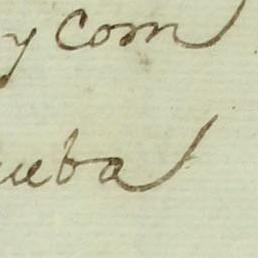 y Com
ueba